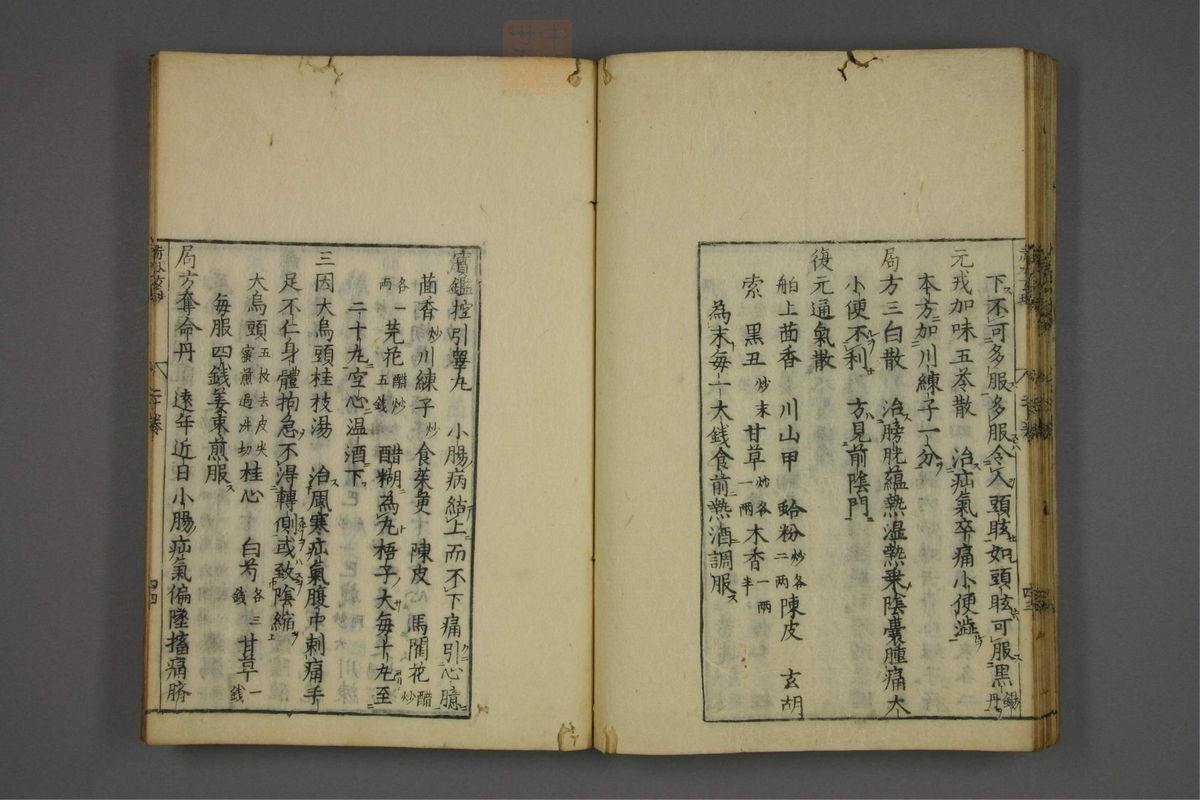 下不可多服多服令人頭眩如頭眩可服黒錫丹
元戎加味五苓散 治疝氣卒痛小便澁
本方加川練子一分
局方三白散 治膀胱蘊熱湿熱乗陰嚢腫痛大
小便不利 方見前陰門
復元通氣散
舶上茴香 川山甲 蛤粉炒各二两 陳皮 玄胡
索 黒丑炒末 甘草炒各一两 木香一两半
為末毎一大銭食前熱酒調服
寳鑑控引睾丸 小腸病結上而不下痛引心臆
茴香炒川練子炒食茱萸 陳皮 馬藺花醋炒
各一两芫花醋炒五銭 醋糊為丸梧子大毎十丸至
二十丸空心温酒下
三因大烏頭桂枝湯 治風寒疝氣腹中刺痛手
足不仁身體拘急不得轉側或致陰縮
大烏頭五枚去皮尖蜜煎過洋切桂心 白芍各三銭甘草一銭
毎服四銭姜棗煎服
局方奪命丹 遠年近日小腸疝氣偏墜搐痛臍